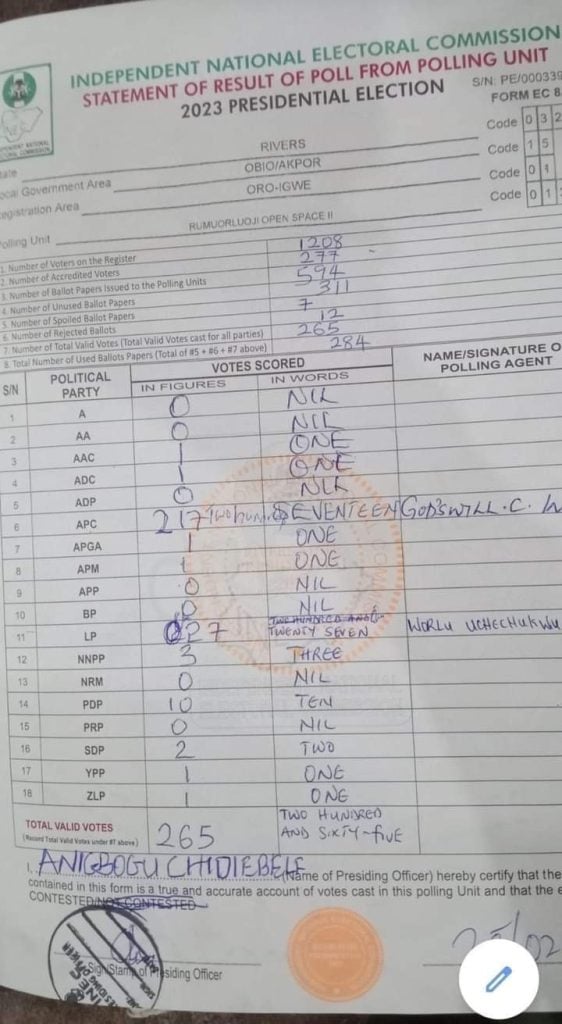 INDEPENDENT NATIONAL ELECTORAL COMMISSION
STATEMENT OF RESULT OF POLL FROM POLLING UNIT
2023 PRESIDENTIAL ELECTION
S/N: PE/000339
FORM EC 8
RIVERS Code 0 3 2
Local Government Area OBIO/AKPOR Code 1 5
Registration Area ORO-IGWE Code 0 1
Polling Unit RUMUORLUOJI OPEN SPACE II Code 0 1
1. Number of Voters on the Register 1208
2. Number of Accredited Voters 277
3. Number of Ballot Papers Issued to the Polling Units 594
4. Number of Unused Ballot Papers 311
5. Number of Spoiled Ballot Papers 7
6. Number of Rejected Ballots 12
7. Number of Total Valid Votes (Total Valid Votes cast for all parties) 265
8. Total Number of Used Ballots Papers (Total of #5 + #6 + #7 above) 284
S/N POLITICAL PARTY VOTES SCORED NAME/SIGNATURE O
IN FIGURES IN WORDS POLLING AGENT
1 A 0 NIL
2 AA 0 NIL
3 AAC 1 ONE
4 ADC 1 ONE
5 ADP 0 NIL
6 APC 217 SEVENTEEN GOD'SWILL. C.
7 APGA 1 ONE
8 APM 1 ONE
9 APP 0 NIL
10 BP 0 NIL
11 LP 27 TWO HUNDRED AND TWENTY SEVEN WORLU UCHECHUKWU
12 NNPP 3 THREE
13 NRM 0 NIL
14 PDP 10 TEN
15 PRP 0 NIL
16 SDP 2 TWO
17 YPP 1 ONE
18 ZLP 1 ONE
TOTAL VALID VOTES 265 TWO HUNDRED
(Record Total Valid Votes under #7 above) AND SIXTY-five
I, ANIGBOGU CHIDIEBELE (Name of Presiding Officer) hereby certify that the
contained in this form is a true and accurate account of votes cast in this polling Unit and that the e
CONTESTED/NOT CONTESTED
Sign/Stamp of Presiding Officer